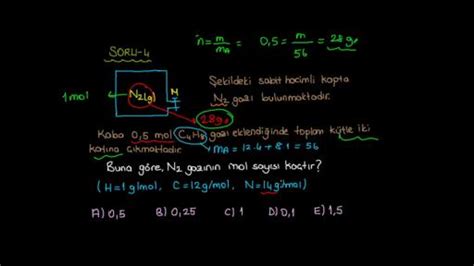 SORU-4
n = m/mA
0,5 = m/56 = 28g
1mol
N2(g)
M
28g
Şekildeki sabit hacimli kapta
N2 gazı bulunmaktadır.
Kaba 0,5 mol C4H8 gazı eklendiğinde toplam kütle iki
katına çıkmaktadır.
mA = 12.4 + 8.1 = 56
Buna göre, N2 gazının mol sayısı kaçtır?
(H=1g/mol, C=12g/mol, N=14g/mol)
A) 0,5 B) 0,25 C) 1 D) 0,1 E) 1,5